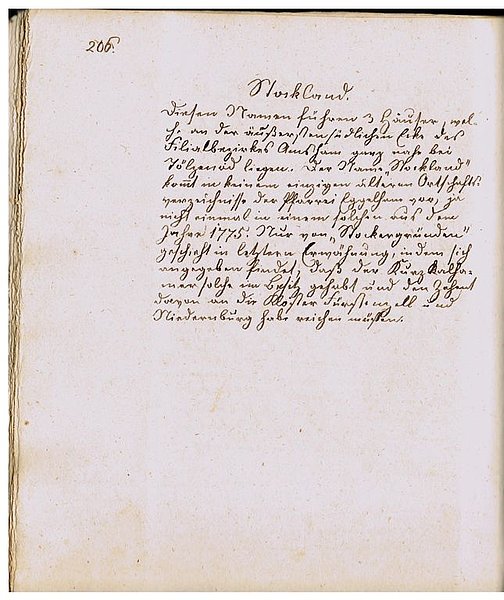 206.
Stockland.
Diesen Namen führen 3 Häuser, wel-
che an der äußersten südlichen Ecke des
Filialbezirkes Amsham ganz nahe bei
Tölzenöd liegen. Der Name „Stockland"
komt in keinem einzigen älteren Ortschafts-
verzeichnisse der Pfarrei Egglham vor, ja
nicht einmal in einem solchen aus dem
Jahre 1775. Nur von „Stockergründen"
geschieht in letztern Erwähnung, indem sich
angegeben findet, daß der
solche im Besitz gehabt und den Zehent
davon an die Klöster Fürstenzell und
Niedernburg habe reichen müssen.